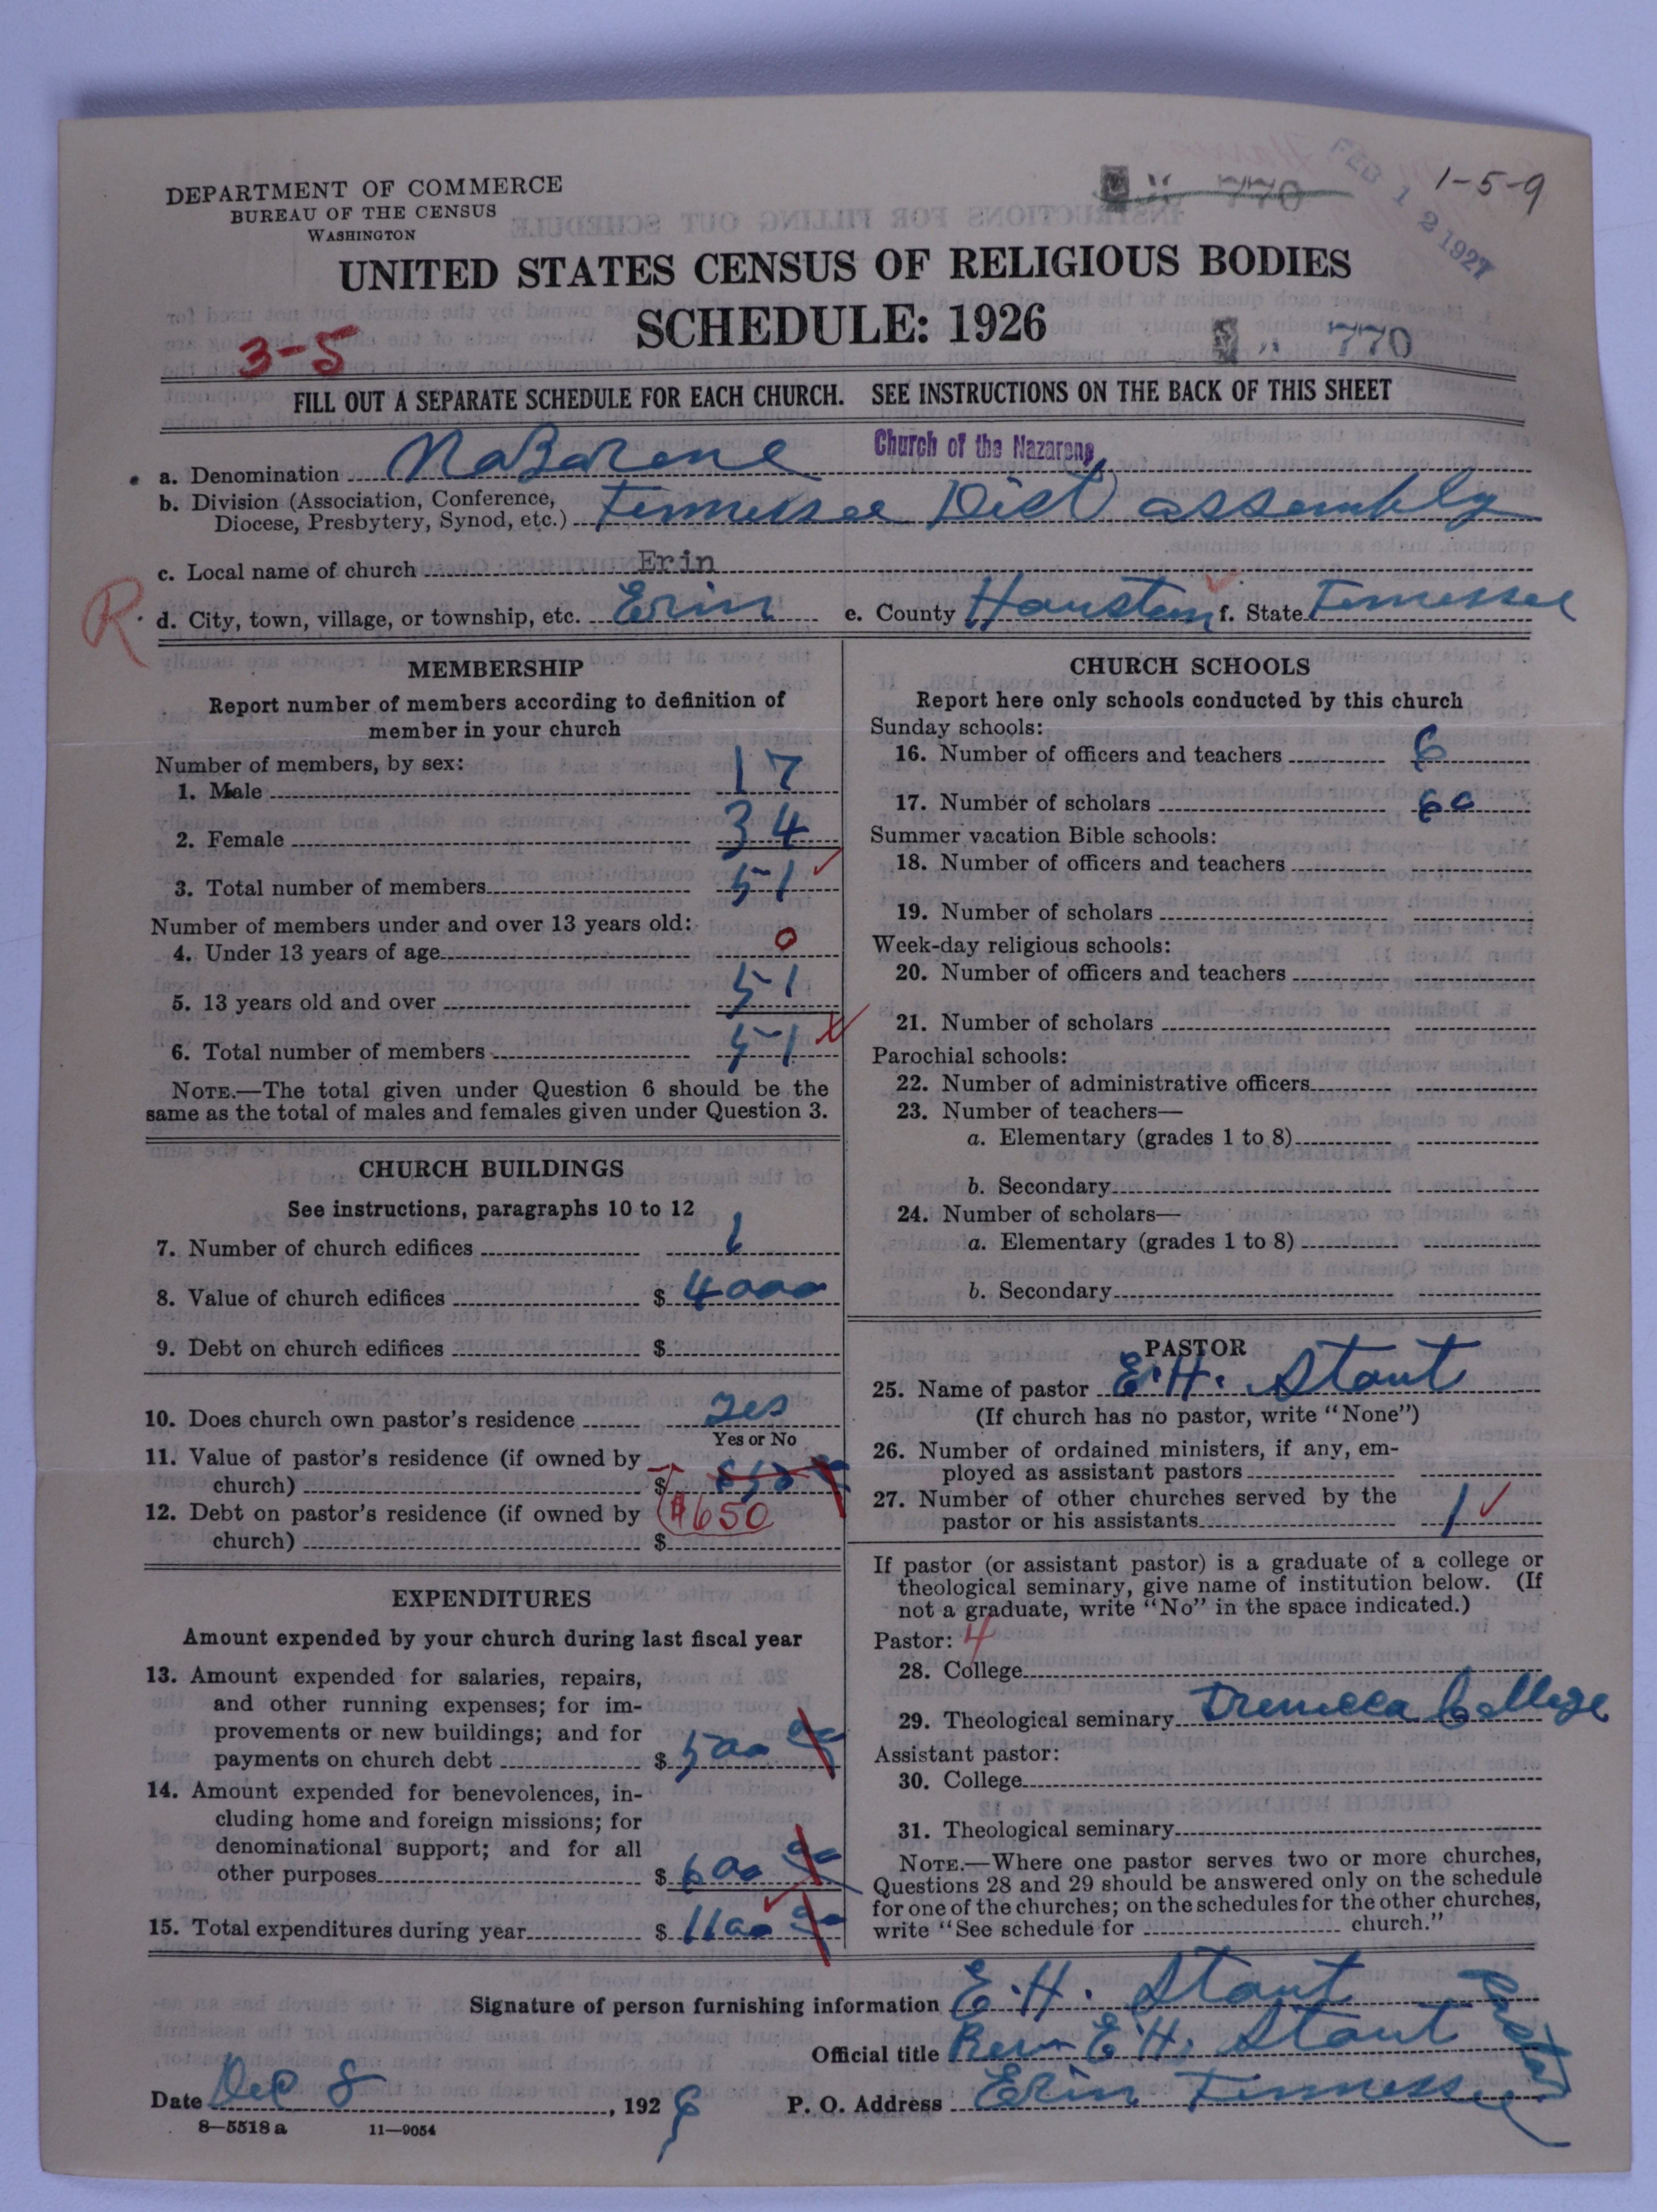 DEPARTMENT OF COMMERCE
BUREAU OF THE CENSUS
WASHINGTON
770
FEB 12 1927
1-5-9
UNITED STATES CENSUS OF RELIGIOUS BODIES
SCHEDULE: 1926
3-5
770
FILL OUT A SEPARATE SCHEDULE FOR EACH CHURCH. SEE INSTRUCTIONS ON THE BACK OF THIS SHEET
a. Denomination Nazarene Church of the Nazarene
b. Division (Association, Conference,
Diocese, Presbytery, Synod, etc.) Tennessee Dist assembly
c. Local name of church Erin
R
d. City, town, village, or township, etc. Erin e. County Houston f. State Tennessee
MEMBERSHIP
Report number of members according to definition of
member in your church
Number of members, by sex:
1. Male 17
2. Female 34
3. Total number of members 51
Number of members under and over 13 years old:
4. Under 13 years of age 0
5. 13 years old and over 51
6. Total number of members 51
NOTE.—The total given under Question 6 should be the
same as the total of males and females given under Question 3.
CHURCH BUILDINGS
See instructions, paragraphs 10 to 12
7. Number of church edifices 1
8. Value of church edifices $ 4000
9. Debt on church edifices $
10. Does church own pastor's residence yes
Yes or No
11. Value of pastor's residence (if owned by
church) $
12. Debt on pastor's residence (if owned by $650
church) $
EXPENDITURES
Amount expended by your church during last fiscal year
13. Amount expended for salaries, repairs,
and other running expenses; for im-
provements or new buildings; and for
payments on church debt $ 500 00
14. Amount expended for benevolences, in-
cluding home and foreign missions; for
denominational support; and for all
other purposes $ 600 00
15. Total expenditures during year $ 1100 00
CHURCH SCHOOLS
Report here only schools conducted by this church
Sunday schools:
16. Number of officers and teachers 6
17. Number of scholars 60
Summer vacation Bible schools:
18. Number of officers and teachers
19. Number of scholars
Week-day religious schools:
20. Number of officers and teachers
21. Number of scholars
Parochial schools:
22. Number of administrative officers
23. Number of teachers—
a. Elementary (grades 1 to 8)
b. Secondary
24. Number of scholars—
a. Elementary (grades 1 to 8)
b. Secondary
PASTOR
25. Name of pastor E. H. Stout
(If church has no pastor, write "None")
26. Number of ordained ministers, if any, em-
ployed as assistant pastors
27. Number of other churches served by the
pastor or his assistants 1
If pastor (or assistant pastor) is a graduate of a college or
theological seminary, give name of institution below. (If
not a graduate, write "No" in the space indicated.)
Pastor: 4
28. College
29. Theological seminary Trevecca College
Assistant pastor:
30. College
31. Theological seminary
NOTE.—Where one pastor serves two or more churches,
Questions 28 and 29 should be answered only on the schedule
for one of the churches; on the schedules for the other churches,
write "See schedule for church."
Signature of person furnishing information E. H. Stout
Official title Rev E. H. Stout Pastor
Date Dec 8, 1926 P. O. Address Erin Tennessee
8-5518 a 11-9054